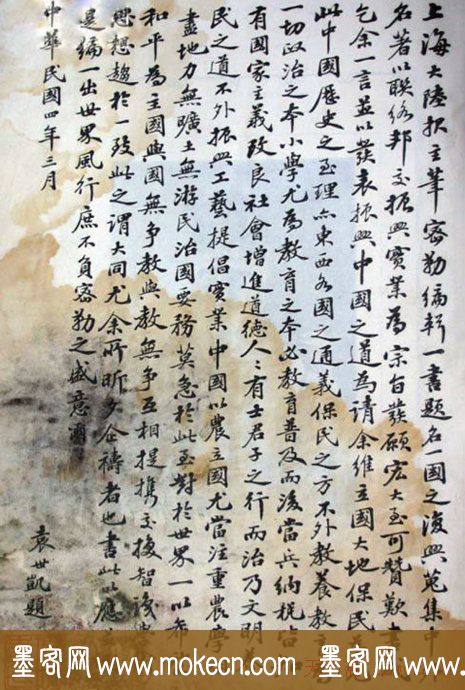 上海大陸報主筆密勒編輯一書題名一國之復興蒐集中
名著以聯絡邦交振興實業為宗旨發願宏大至可贊歎書
乞余一言並以發表振興中國之道為請余維立國大地保民
此中國歷史之至理亦東西各國之通義保民之方不外教養教
一切政治之本小學尤為教育之本必教育普及而後當兵納稅
有國家主義改良社會增進道德人々有士君子之行而治乃文明
民之道不外振興工藝提倡實業中國以農立國尤當注重農學
盡地力無曠土無游民治國要務莫急於此至對於世界一以希
和平為主國與國無爭教與教無爭互相提攜交換智識學
思想趨於一致此之謂大同尤余所昕夕企禱者也書此以應
是編一出世界風行庶不負密勒之盛意爾
中華民國四年三月
袁世凱題
墨客网 www.mokecn.com 墨客网 www.